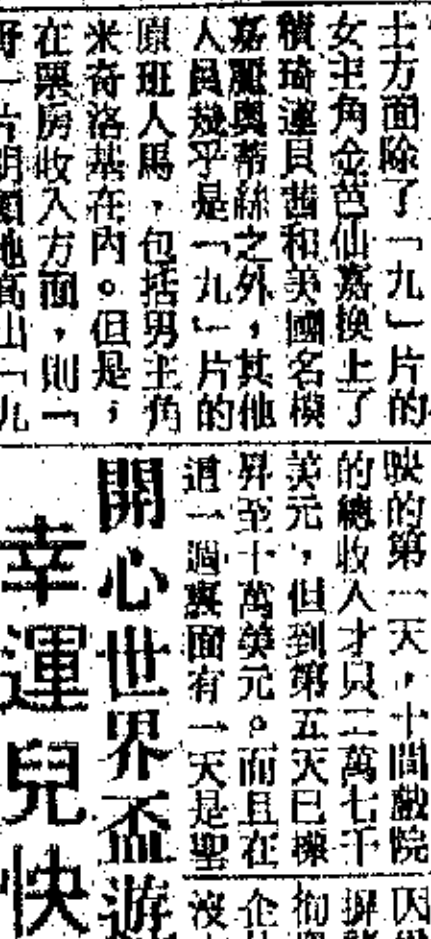 士方面除了「九」片的
女主角金芭仙嘉換上了
積琦蓮貝茜和美國名模
嘉麗奧蒂絲之外，其他
人員幾乎是「九」片的
原班人馬，包括男主角
米奇洛基在內。但是，
在票房收入方面，則「
映的第一天，十間戲院
的總收入才只二萬七千
美元，但到第五天已標
昇至十萬美元。而且在
這一週裏面有一天是聖
開心世界盃游
幸運兒快